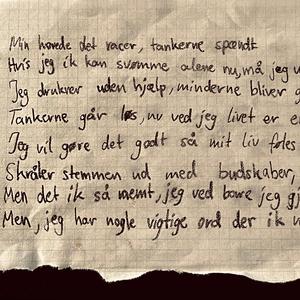 Min hovede det racer, tankerne spændt
Hvis jeg ik kan svømme alene nu, må jeg
Jeg drukner uden hjælp, minderne bliver
Tankerne går løs, nu ved jeg livet er
Jeg vil gøre det godt så mit liv føles
Skråler stemmen ud med budskaber,
Men det ik så nemt, jeg ved bare jeg
Men, jeg har nogle vigtige ord der ik